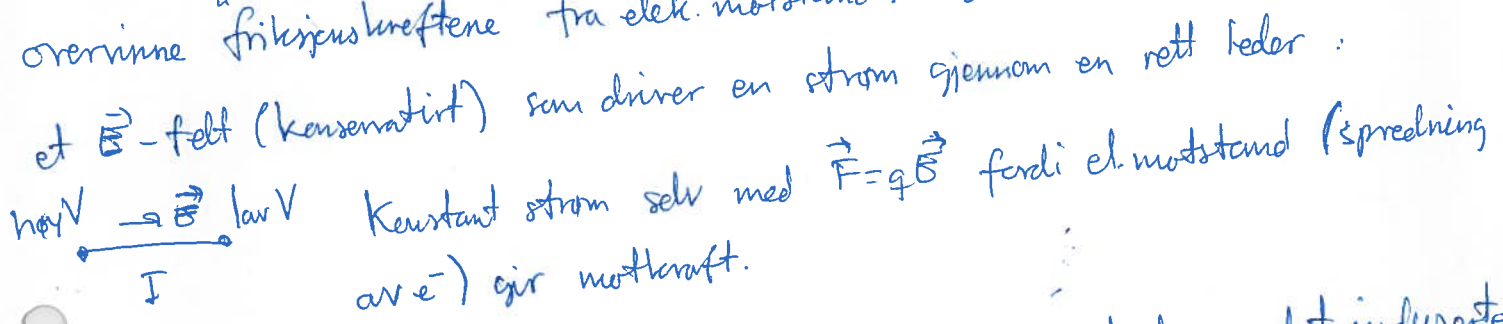 overvinne friksjonskreftene fra elek.
et E⃗-felt (konservativt) som driver en strøm gjennom en rett leder :
høy V → E⃗ lav V Konstant strøm selv med F⃗ = qE⃗ fordi el. motstand (spredning
I av e⁻) gir motkraft.